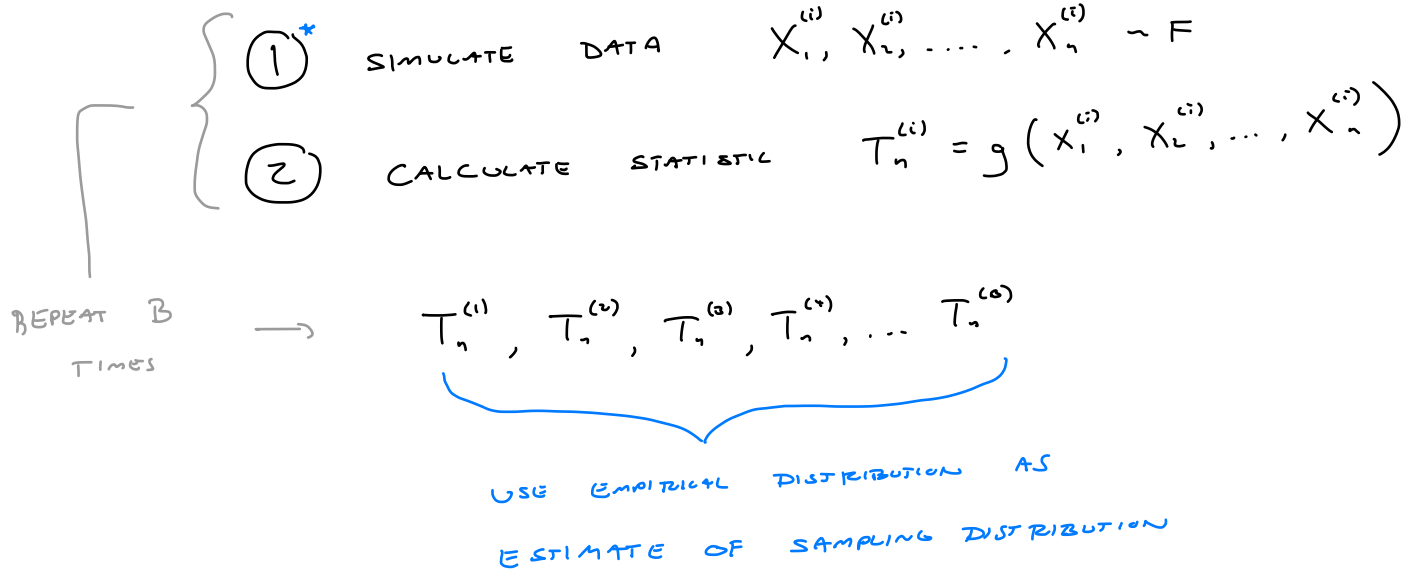 ①* SIMULATE DATA X₁⁽ⁱ⁾, X₂⁽ⁱ⁾, ...., Xₙ⁽ⁱ⁾ ~ F
② CALCULATE STATISTIC Tₙ⁽ⁱ⁾ = g(X₁⁽ⁱ⁾, X₂⁽ⁱ⁾, ..., Xₙ⁽ⁱ⁾)
REPEAT B
TIMES
→ Tₙ⁽¹⁾, Tₙ⁽²⁾, Tₙ⁽³⁾, Tₙ⁽⁴⁾, ... Tₙ⁽ᴮ⁾
USE EMPIRICAL DISTRIBUTION AS
ESTIMATE OF SAMPLING DISTRIBUTION